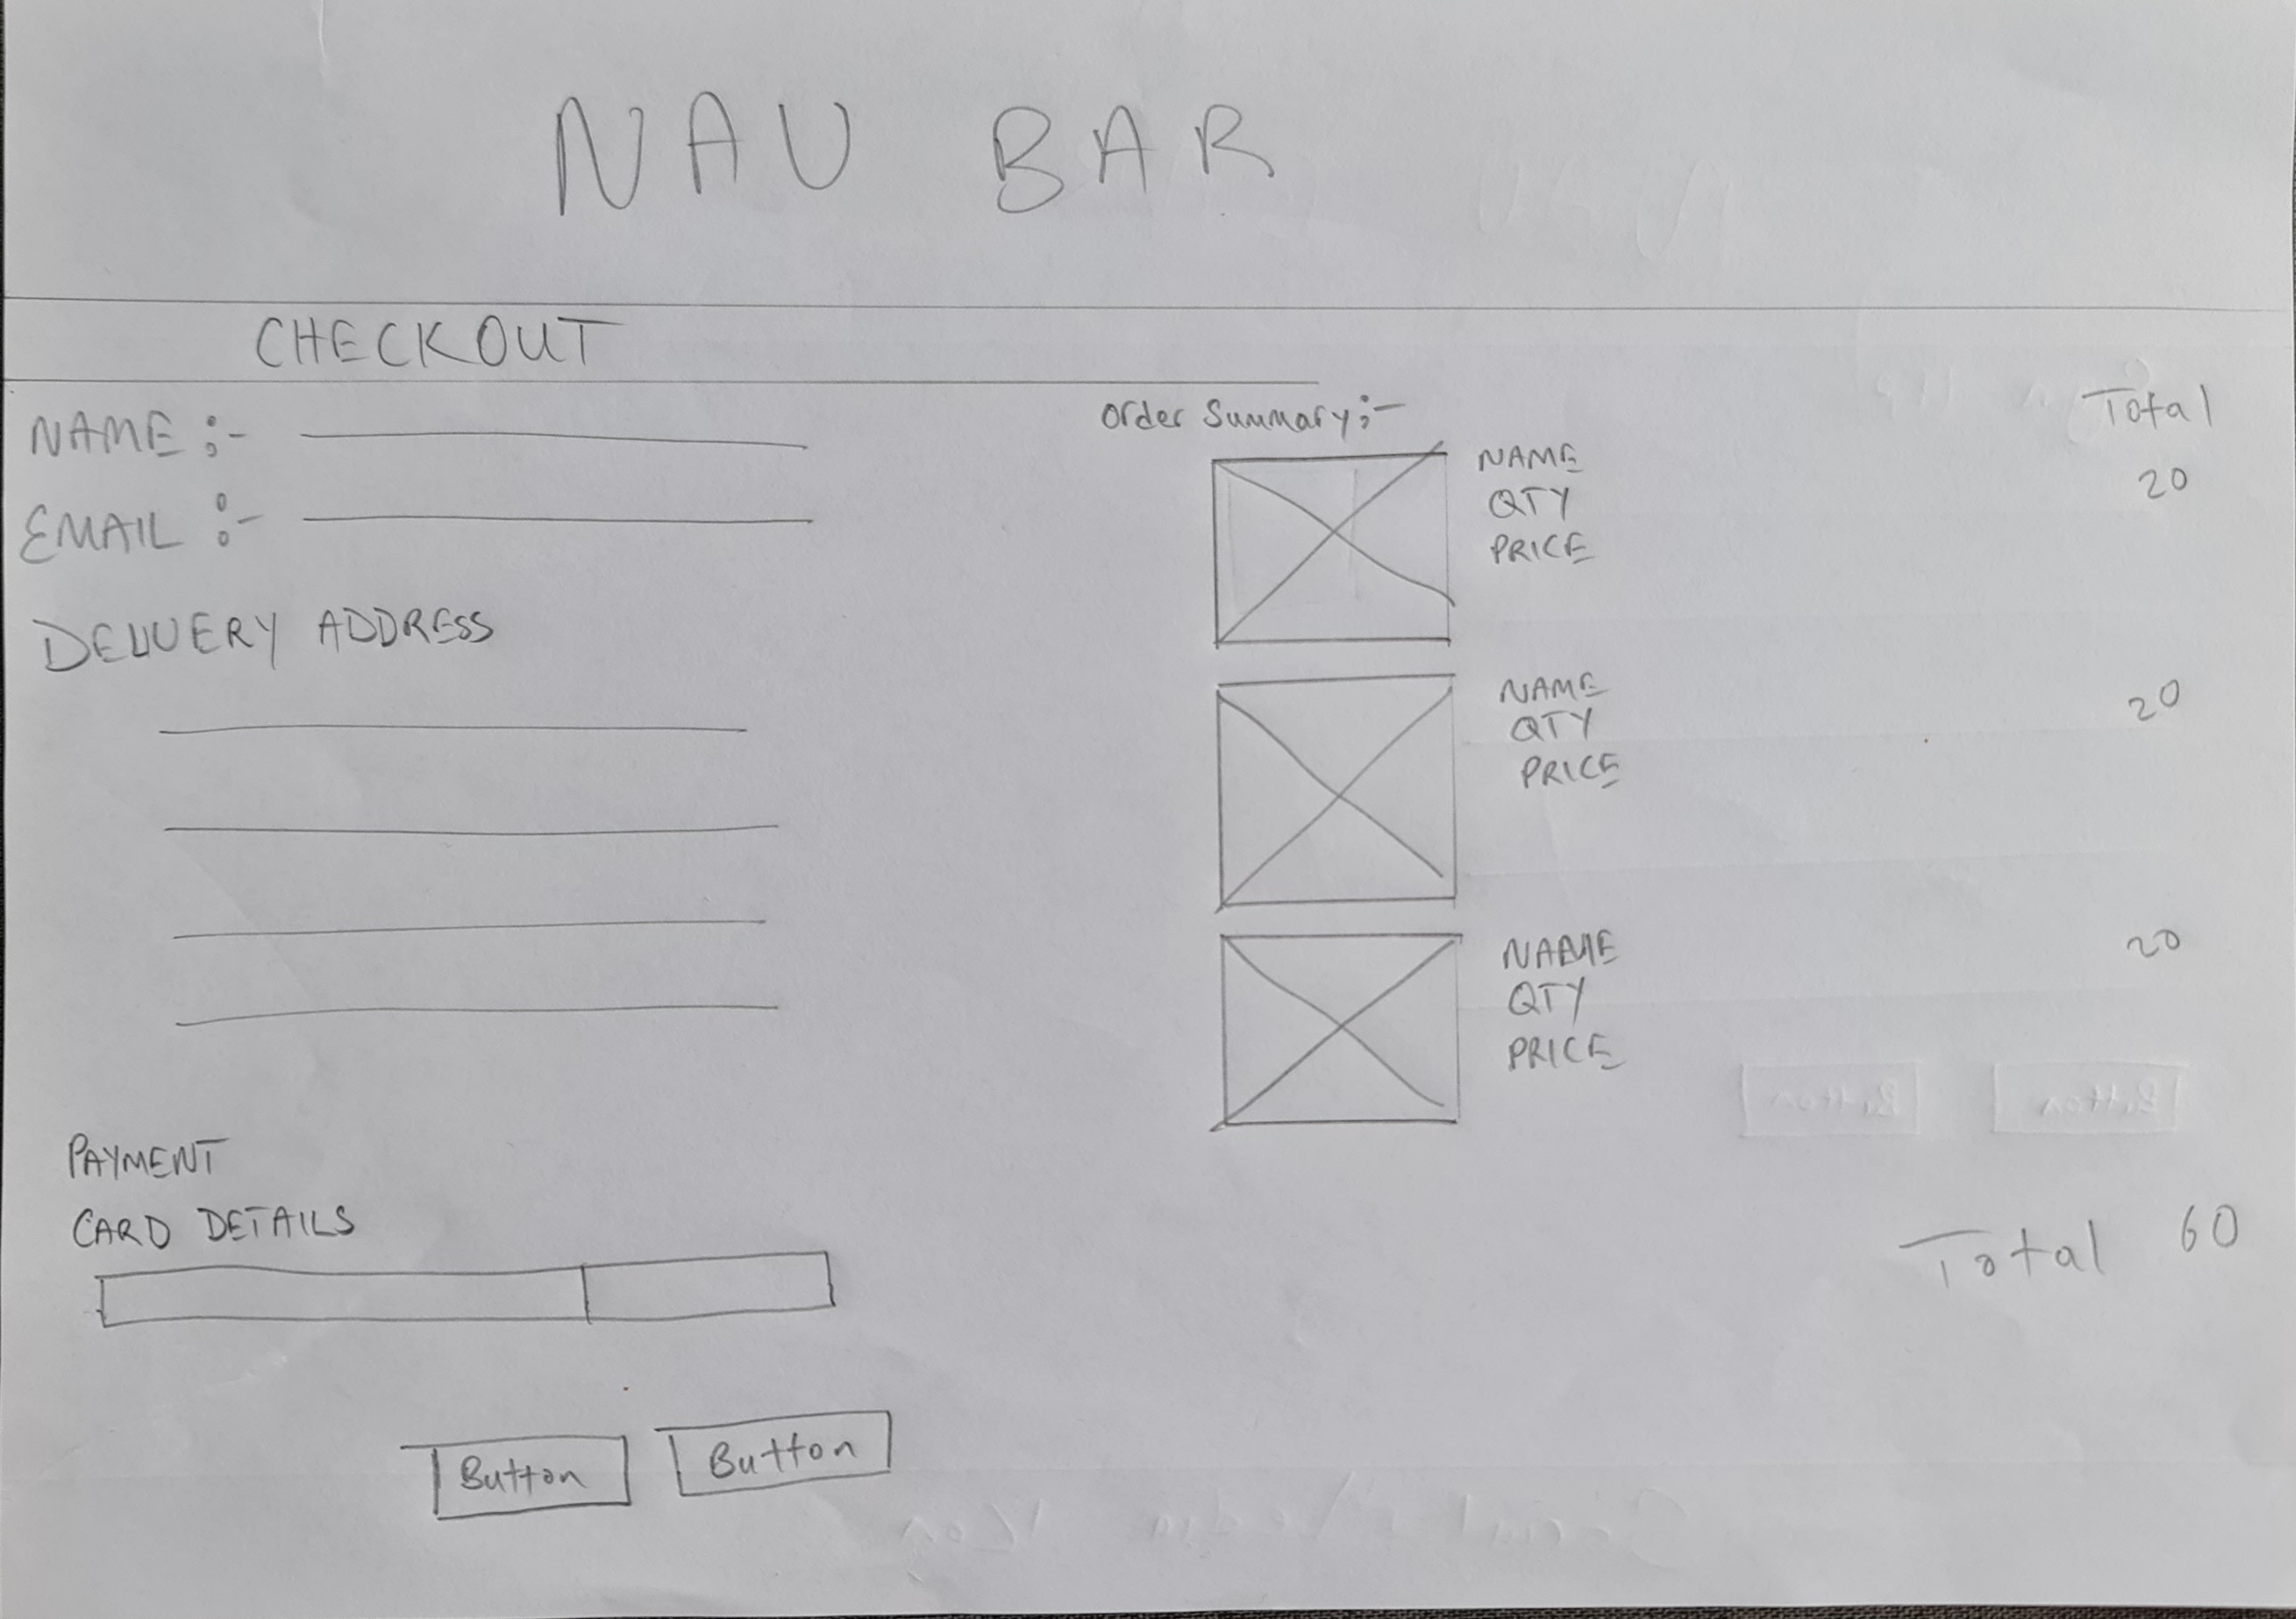 NAV BAR
CHECKOUT
NAME :-
EMAIL :-
DELIVERY ADDRESS
PAYMENT
CARD DETAILS
Button
Button
Order Summary :-
Total
NAME
QTY
PRICE
20
NAME
QTY
PRICE
20
NAME
QTY
PRICE
20
Total 60